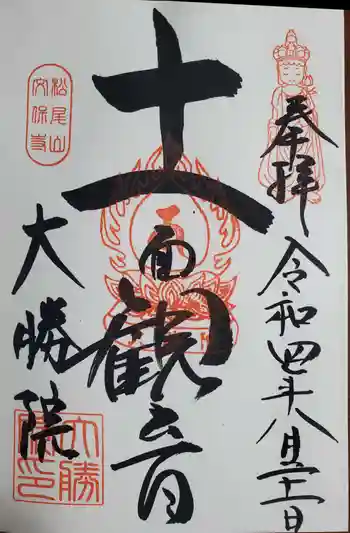 奉拝
令和四年八月二十一日
十一面観音
松尾山
文保寺
大勝院
大勝
院印